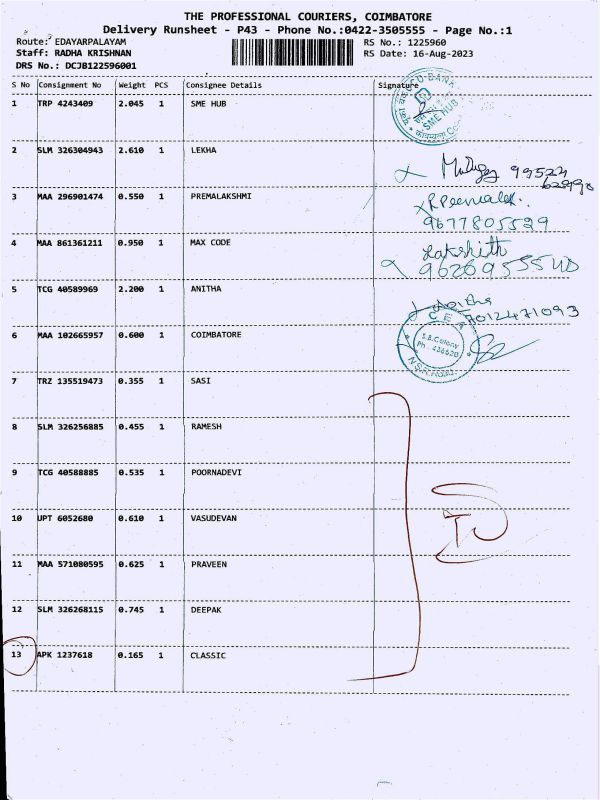 THE PROFESSIONAL COURIERS, COIMBATORE
Delivery Runsheet - P43 - Phone No.:0422-3505555 - Page No.:1
Route: EDAYARPALAYAM RS No.: 1225960
Staff: RADHA KRISHNAN RS Date: 16-Aug-2023
DRS No.: DCJB122596001
S No Consignment No Weight PCS Consignee Details Signature
1 TRP 4243409 2.045 1 SME HUB
SME HUB
2 SLM 326304943 2.610 1 LEKHA
99524
3 MAA 296901474 0.550 1 PREMALAKSHMI
9677805529
4 MAA 861361211 0.950 1 MAX CODE
Lakshith
5 TCG 40589969 2.200 1 ANITHA
7012471093
6 MAA 102665957 0.600 1 COIMBATORE
S.B.Colony
Ph : 436520
7 TRZ 135519473 0.355 1 SASI
8 SLM 326256885 0.455 1 RAMESH
9 TCG 40588885 0.535 1 POORNADEVI
10 UPT 6052680 0.610 1 VASUDEVAN
11 MAA 571080595 0.625 1 PRAVEEN
12 SLM 326268115 0.745 1 DEEPAK
13 APK 1237618 0.165 1 CLASSIC